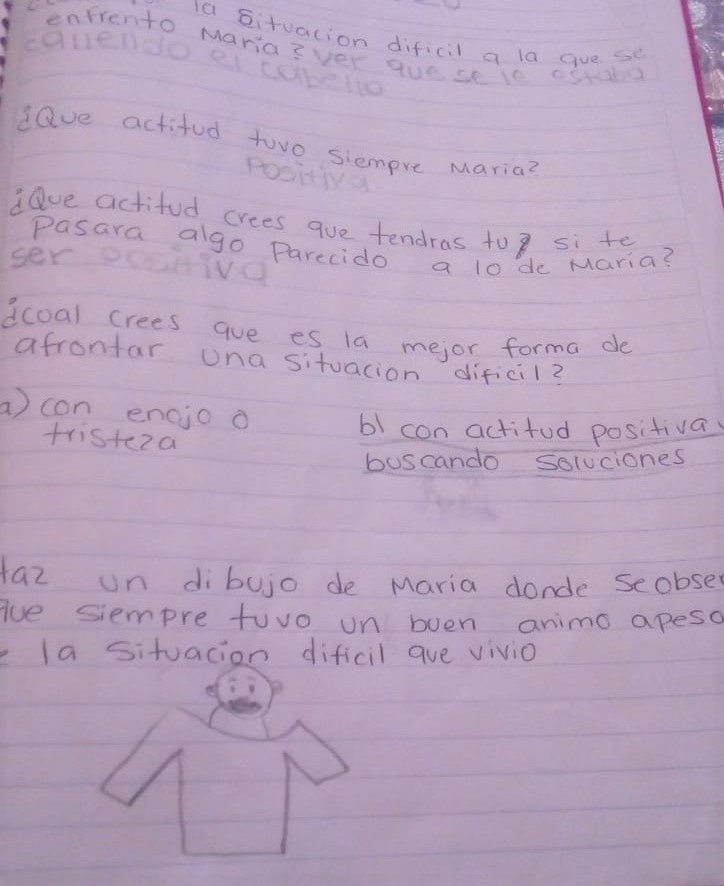 la situacion dificil a la que se
enfrento Maria? ver que se le estaba
callendo el cabello
¿Que actitud tuvo siempre Maria?
Positiva
¿Que actitud crees que tendras tu si te
Pasara algo Parecido a lo de Maria?
ser positiva
¿coal crees que es la mejor forma de
afrontar una situacion dificil?
a) con enojo o
tristeza
b) con actitud positiva
buscando soluciones
Haz un dibujo de Maria donde se obser
que siempre tuvo un buen animo apesa
e la situacion dificil que vivio